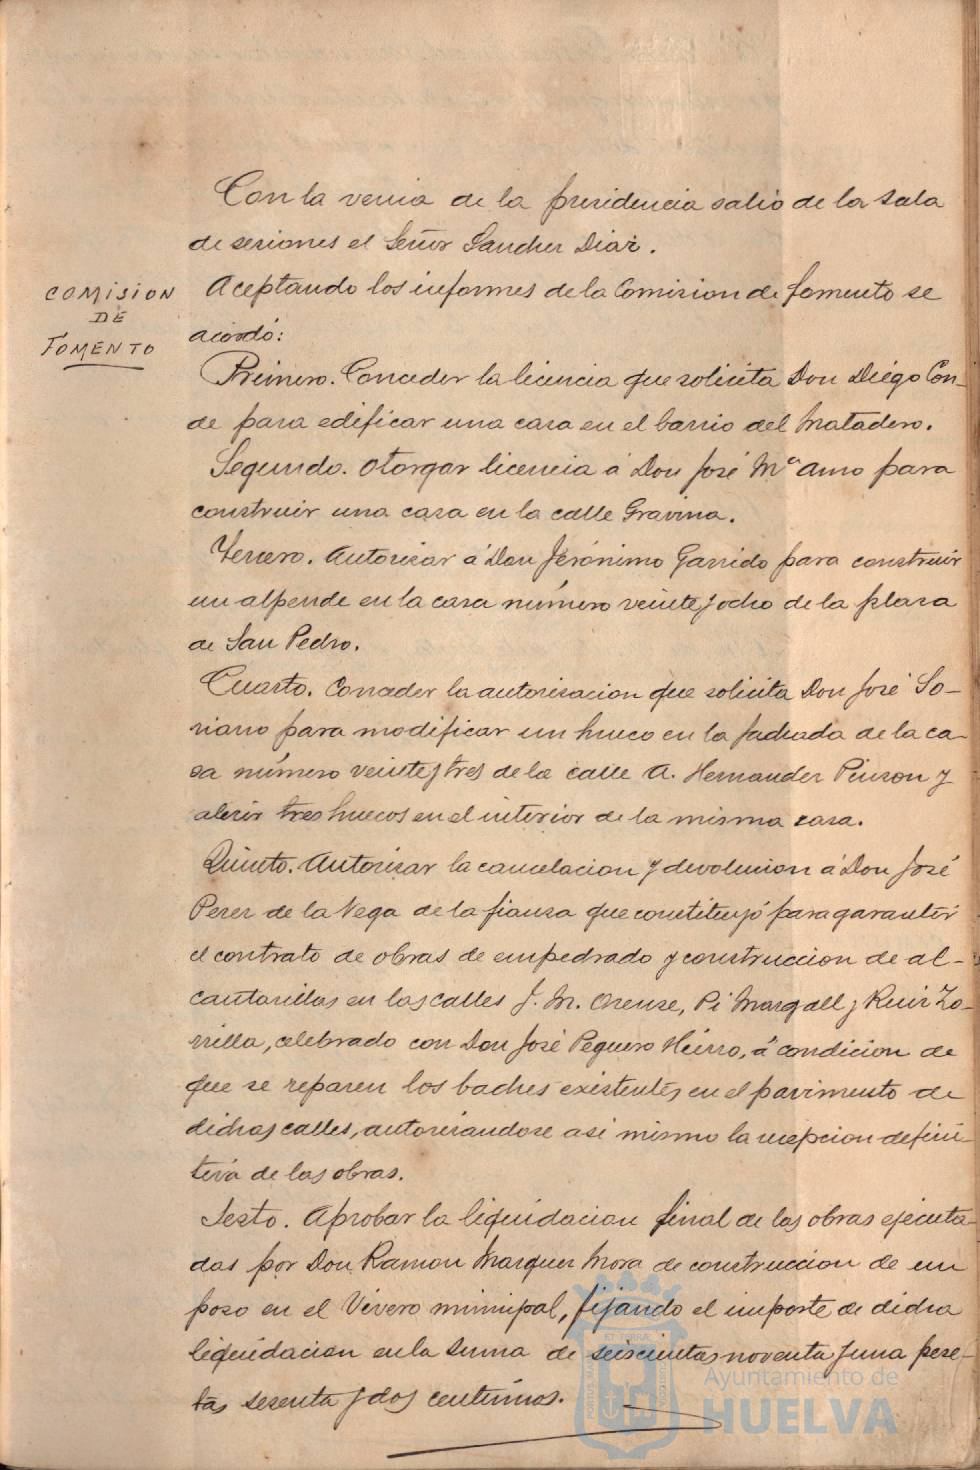 Con la venia de la presidencia salió de la Sala
de sesiones el Señor Sanchez Diaz.
COMISION
DE
FOMENTO
Aceptando los informes de la Comision de fomento se
acordó:
Primero. Conceder la licencia que solicita Don Diego Con-
de para edificar una casa en el barrio del Matadero.
Segundo. Otorgar licencia á Don José Mª Amo para
construir una casa en la calle Gravina.
Tercero. Autorizar á Don Jerónimo Garrido para construir
un alpende en la casa número veinte y ocho de la plaza
de San Pedro.
Cuarto. Conceder la autorizacion que solicita Don José So-
riano para modificar un hueco en la fachada de la ca-
sa número veinte y tres de la calle A. Hernandez Pinzon y
abrir tres huecos en el interior de la misma casa.
Quinto. Autorizar la cancelacion y devolucion á Don José
Perez de la Vega de la fianza que constituyó para garantir
el contrato de obras de empedrado y construccion de al-
cantarillas en las calles J. M. Orense, Pi Margall y Ruiz Zo-
rrilla, celebrado con Don José Peguero Hierro, á condicion de
que se reparen los baches existentes en el pavimento de
dichas calles, autorizandose asi mismo la recepcion defini-
tiva de las obras.
Sexto. Aprobar la liquidacion final de las obras ejecuta-
das por Don Ramon Marquez Mora de construccion de un
pozo en el Vivero municipal, fijando el importe de dicha
liquidacion en la suma de seiscientas noventa y una pese-
tas sesenta y dos centimos.
Ayuntamiento de
HUELVA